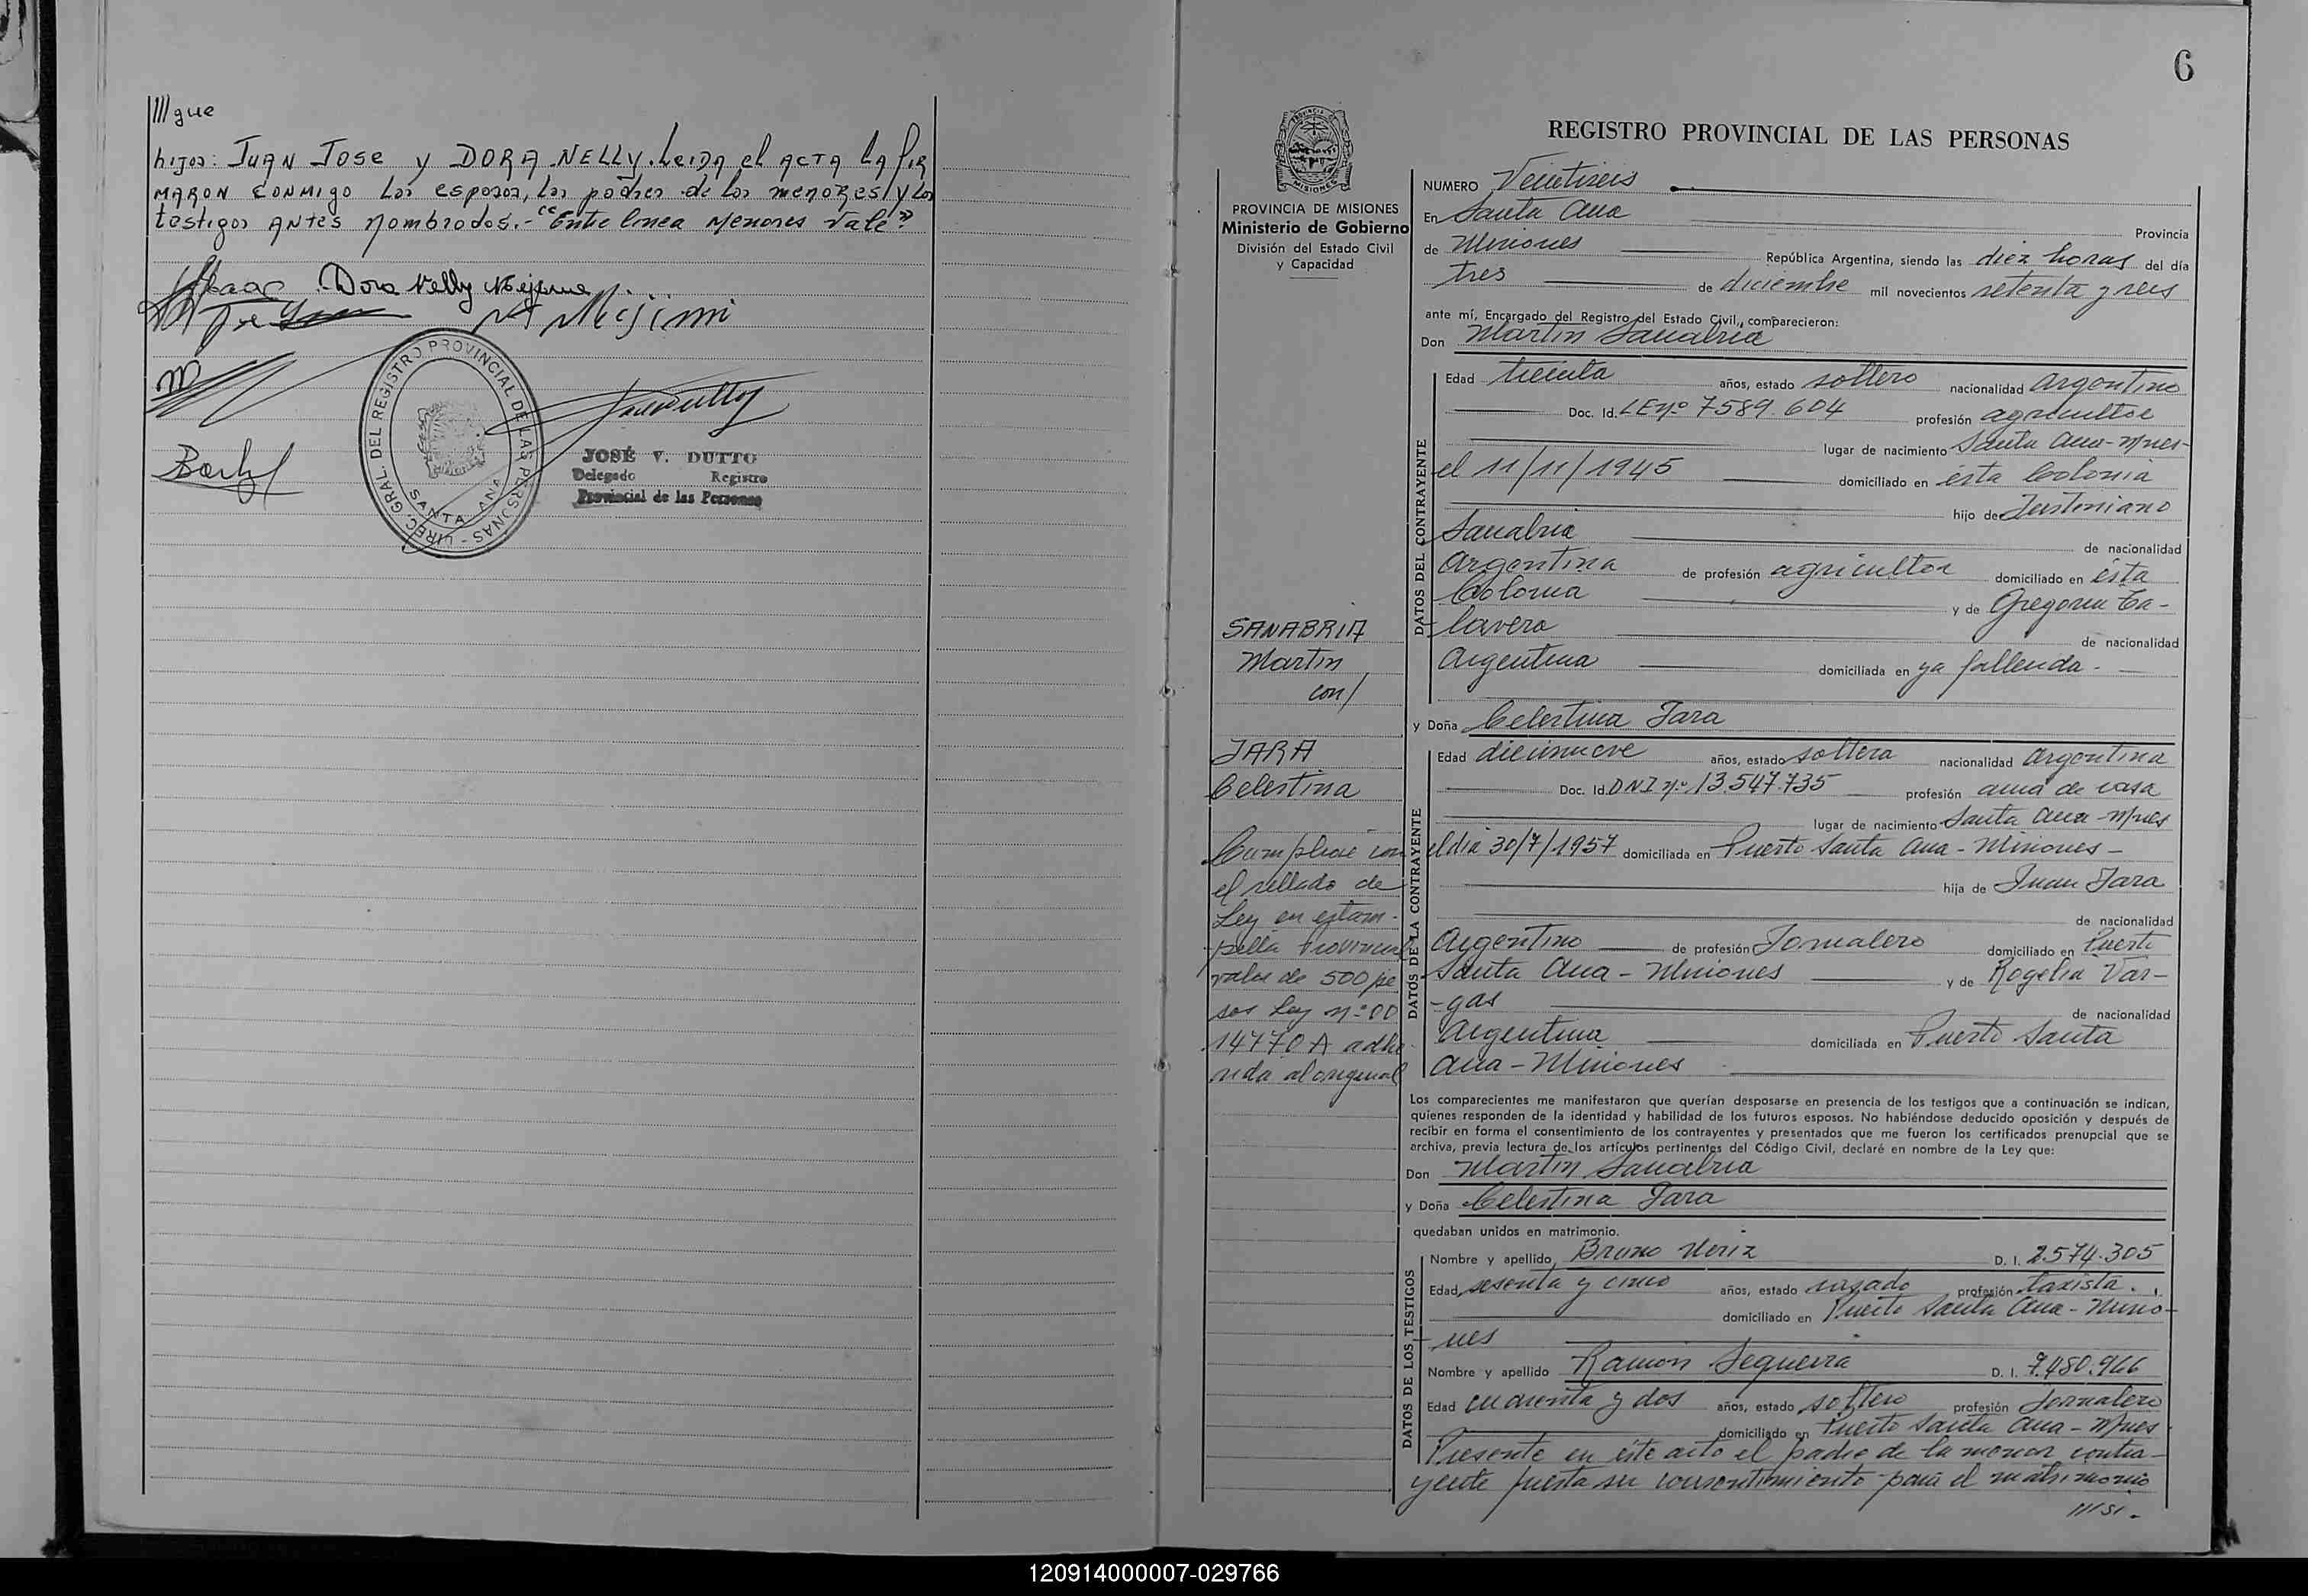 ////gue
hijos: JUAN JOSE y DORA NELLY. Leida el ACTA LA FIR
MARON CONMIGO Los esposos, los padres de los menores/y los
testigos ANTES Nombrados.- "Entre linea Menores Vale"
Dora Nelly
DIREC. GRAL. DEL REGISTRO PROVINCIAL DE LAS PERSONAS -
SANTA ANA
JOSÉ V. DUTTO
Delegado Registro
Provincial de las Personas
6
PROVINCIA DE MISIONES
Ministerio de Gobierno
División del Estado Civil
y Capacidad
SANABRIA
Martin
con/
JARA
Celestina
Cumplese con
el sellado de
Ley en estam-
pilla Provincial
valor de 500 pe
sos Ley nº 00
14770 A adhe
rida al original
REGISTRO PROVINCIAL DE LAS PERSONAS
NUMERO Veintiseis
En Santa Ana
Provincia
de Misiones República Argentina, siendo las diez horas del día
tres de diciembre mil novecientos setenta y seis
ante mí, Encargado del Registro del Estado Civil, comparecieron:
Don Martin Sanabria
DATOS DEL CONTRAYENTE
Edad treinta años, estado soltero nacionalidad argentino
Doc. Id. LE nº 7589.604 profesión agricultor
lugar de nacimiento Santa Ana - Mnes-
el 11/11/1945 domiciliado en ésta Colonia
hijo de Justiniano
Sanabria de nacionalidad
Argentina de profesión agricultor domiciliado en ésta
Colonia y de Gregoria Ta-
lavera de nacionalidad
Argentina domiciliada en ya fallecida.
y Doña Celestina Jara
DATOS DE LA CONTRAYENTE
Edad diecinueve años, estado soltera nacionalidad argentina
Doc. Id. DNI nº 13.547.735 profesión ama de casa
lugar de nacimiento Santa Ana - Mnes
el dia 30/7/1957 domiciliada en Puerto Santa Ana - Misiones -
hija de Juan Jara
de nacionalidad
Argentino de profesión Jornalero domiciliado en Puerto
Santa Ana - Misiones y de Rogelia Var-
-gas de nacionalidad
Argentina domiciliada en Puerto Santa
Ana - Misiones
Los comparecientes me manifestaron que querían desposarse en presencia de los testigos que a continuación se indican,
quienes responden de la identidad y habilidad de los futuros esposos. No habiéndose deducido oposición y después de
recibir en forma el consentimiento de los contrayentes y presentados que me fueron los certificados prenupcial que se
archiva, previa lectura de los artículos pertinentes del Código Civil, declaré en nombre de la Ley que:
Don Martin Sanabria
y Doña Celestina Jara
quedaban unidos en matrimonio.
DATOS DE LOS TESTIGOS
Nombre y apellido Bruno D. I. 2.574.305
Edad sesenta y cinco años, estado casado profesión taxista.
domiciliado en Puerto Santa Ana - Misio-
nes
Nombre y apellido Ramón Sequeira D. I. 7.480.966
Edad cuarenta y dos años, estado soltero profesión Jornalero
domiciliado en Puerto Santa Ana - Mnes
Presente en éste acto el padre de la menor contra-
yente presta su consentimiento para el matrimonio
////si.
120914000007-029766